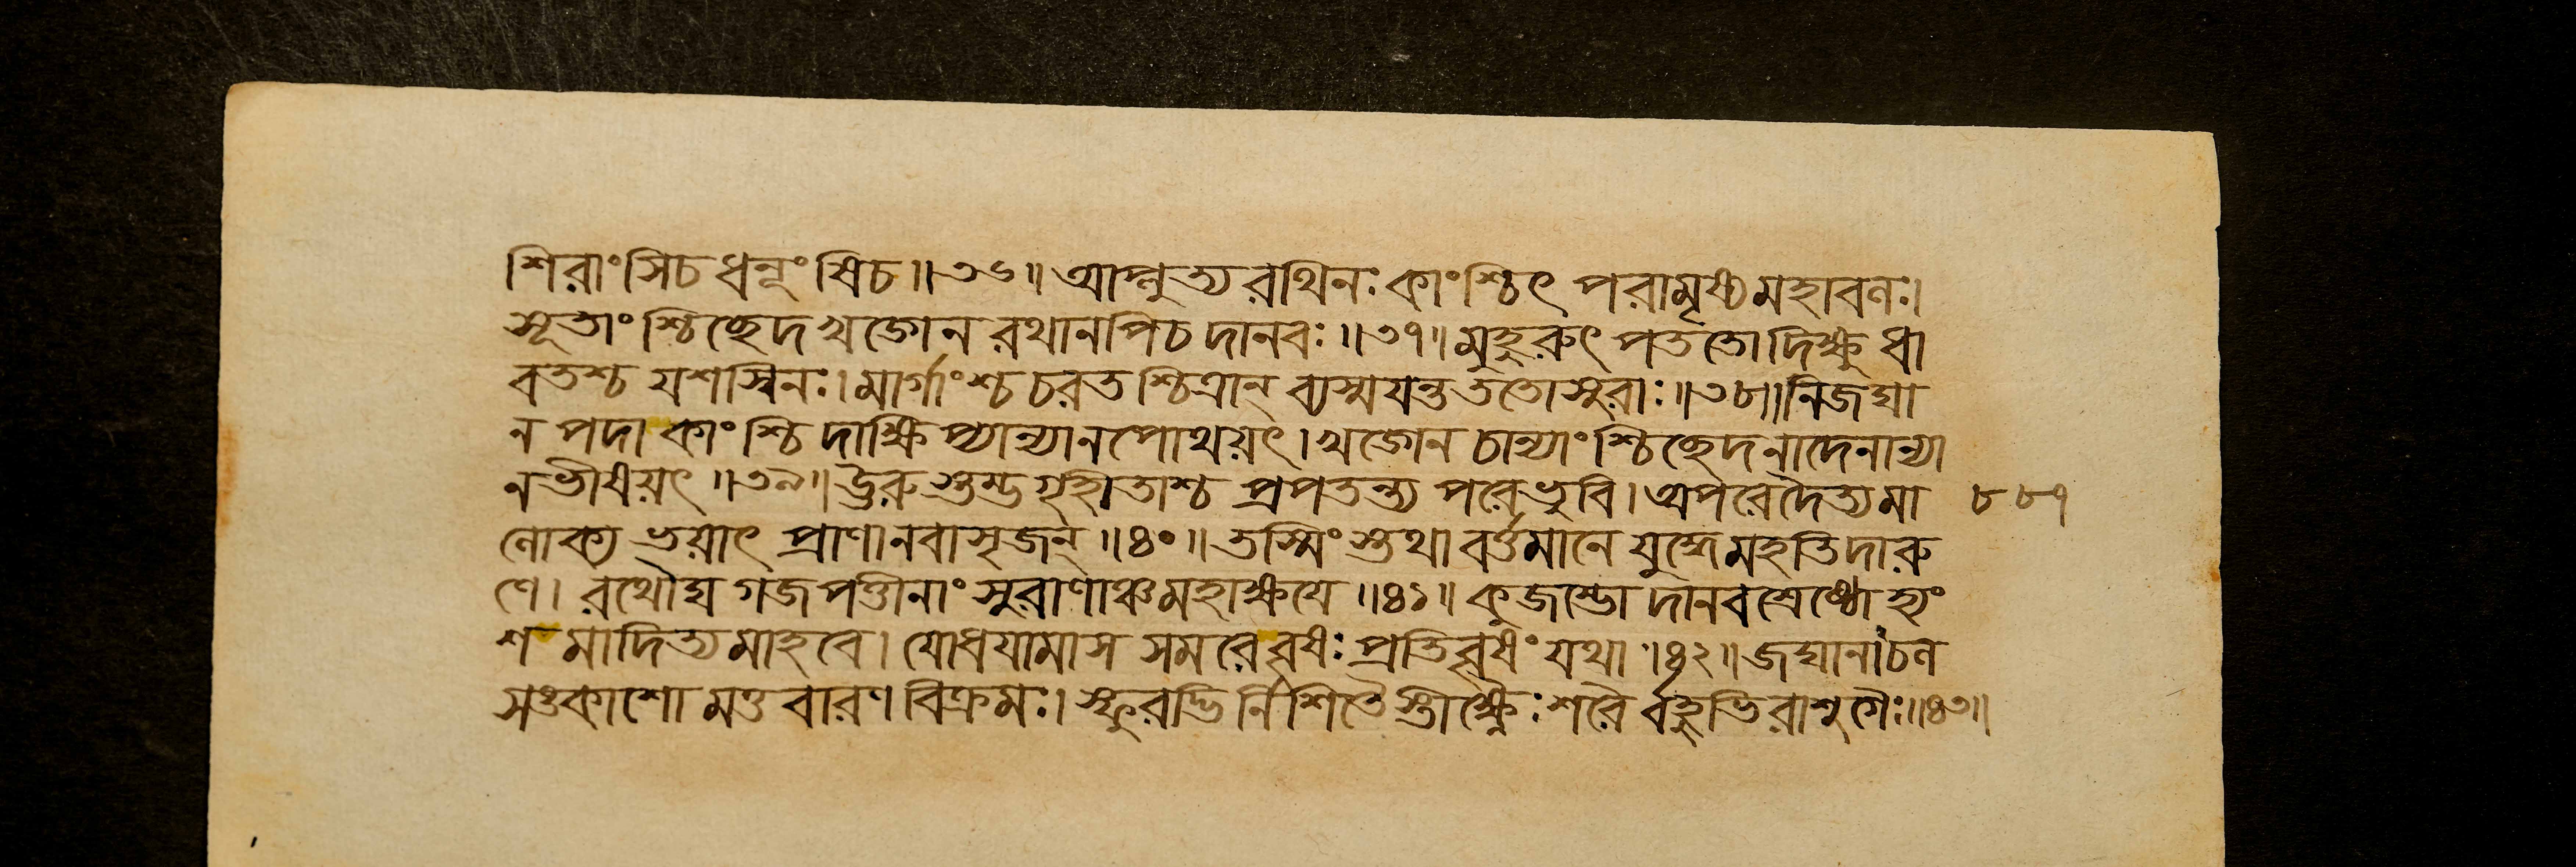 শিরাংসিচধনূংষিচ॥৩৬॥আপ্লুত্যরথিনঃকাংশ্চিৎপরামৃষ্যমহাবলঃ।
সূতাংশ্চিচ্ছেদখড়্গেনরথানপিচদানবঃ॥৩৭॥মুহুরুৎপততোদিক্ষুধা
বতশ্চযশস্বিনঃ।মার্গাংশ্চচরতশ্চিত্রান্ব্যস্ময়ন্ততোসুরাঃ॥৩৮॥নিজঘা
নপদাকাংশ্চিদাক্ষিপ্যান্যানপোথয়ৎ।খড়্গেনচান্যাংশ্চিচ্ছেদনাদেনান্যা
নভীষয়ৎ॥৩৯॥ঊরুস্তম্ভগৃহীতাশ্চপ্রপতন্ত্যপরেভুবি।অপরেদৈত্যমা ৮৮৭
লোক্যভয়াৎপ্রাণানবাসৃজন্॥৪০॥তস্মিংস্তথাবর্ত্তমানেযুদ্ধেমহতিদারু
ণে।রথৌঘগজপত্তীনাংসুরাণাঞ্চমহাক্ষয়ে॥৪১॥কুজম্ভোদানবশ্রেষ্ঠোহ্যং
শমাদিত্যমাহবে।যোধয়ামাসসমরেবৃষঃপ্রতিবৃষংযথা॥৪২॥জঘানাচল
সঙ্কাশোমত্তবারণবিক্রমঃ।স্ফুরদ্ভির্নিশিতৈস্তীক্ষ্ণৈঃশরৈর্বহুভিরাশুগৈঃ॥৪৩॥